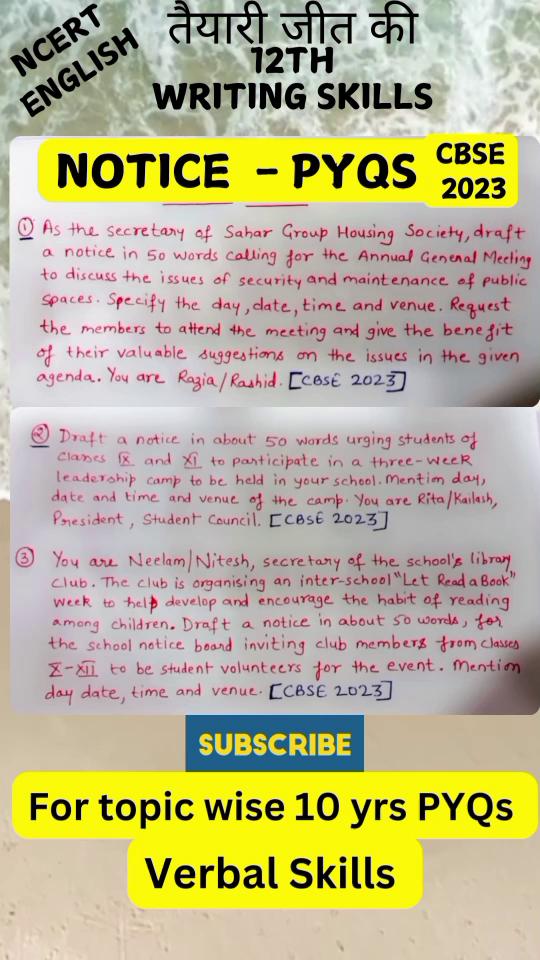 NCERT
ENGLISH
तैयारी जीत की
12TH
WRITING SKILLS
NOTICE - PYQS
CBSE
2023
① As the secretary of Sahar Group Housing Society, draft
a notice in 50 words calling for the Annual General Meeting
to discuss the issues of security and maintenance of public
spaces. Specify the day, date, time and venue. Request
the members to attend the meeting and give the benefit
of their valuable suggestions on the issues in the given
agenda. You are Razia/Rashid. [CBSE 2023]
② Draft a notice in about 50 words urging students of
classes IX and XI to participate in a three-week
leadership camp to be held in your school. Mention day,
date and time and venue of the camp. You are Rita/Kailash,
President, Student Council. [CBSE 2023]
③ You are Neelam/Nitesh, secretary of the school's library
club. The club is organising an inter-school "Let Read a Book"
week to help develop and encourage the habit of reading
among children. Draft a notice in about 50 words, for
the school notice board inviting club members from classes
X-XII to be student volunteers for the event. Mention
day date, time and venue. [CBSE 2023]
SUBSCRIBE
For topic wise 10 yrs PYQs
Verbal Skills